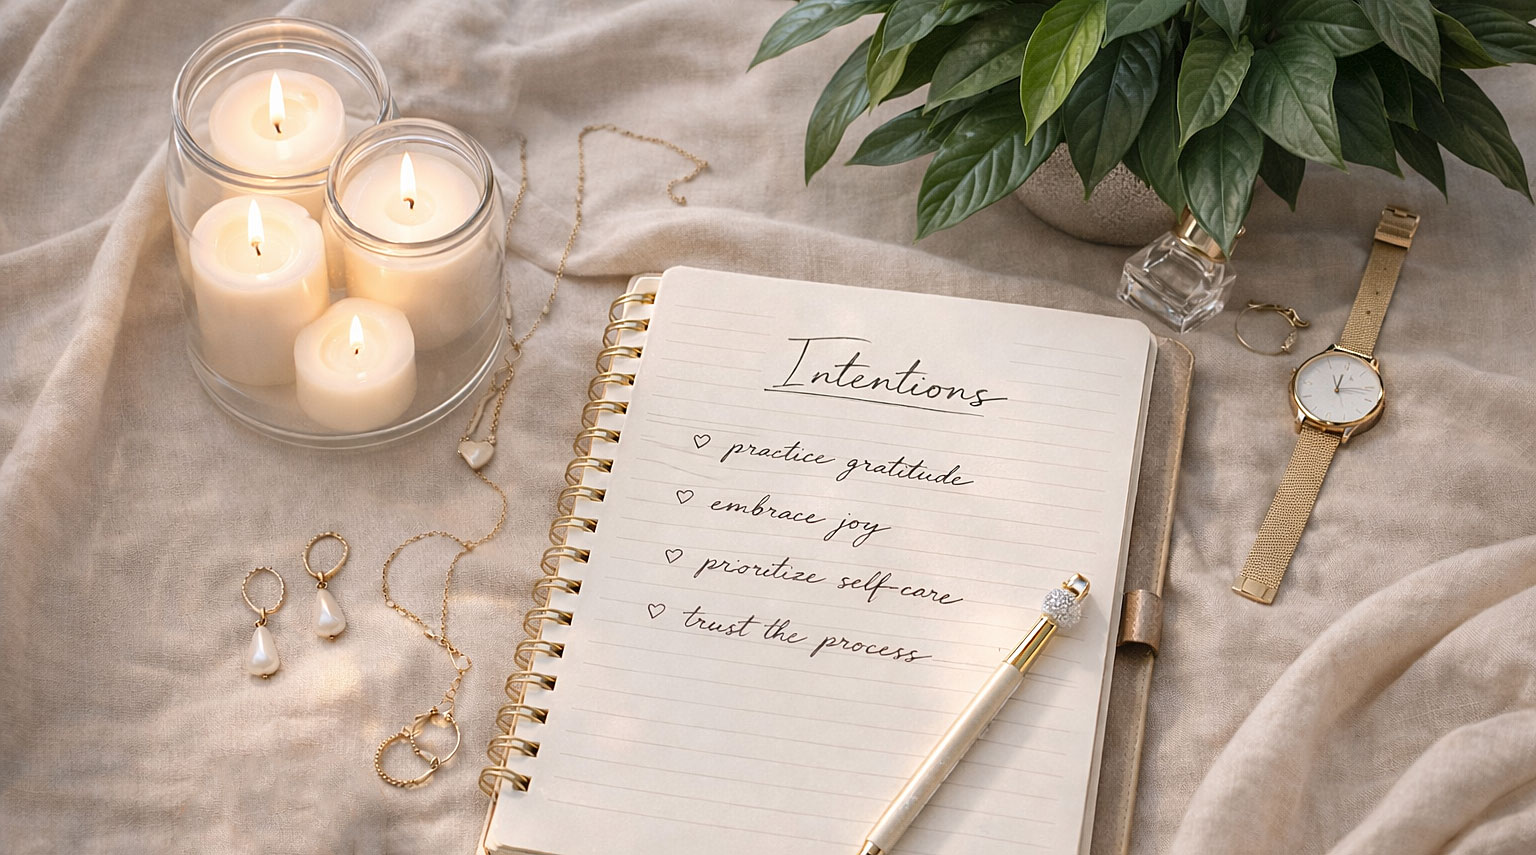 Intentions
♡ practice gratitude
♡ embrace joy
♡ prioritize self-care
♡ trust the process